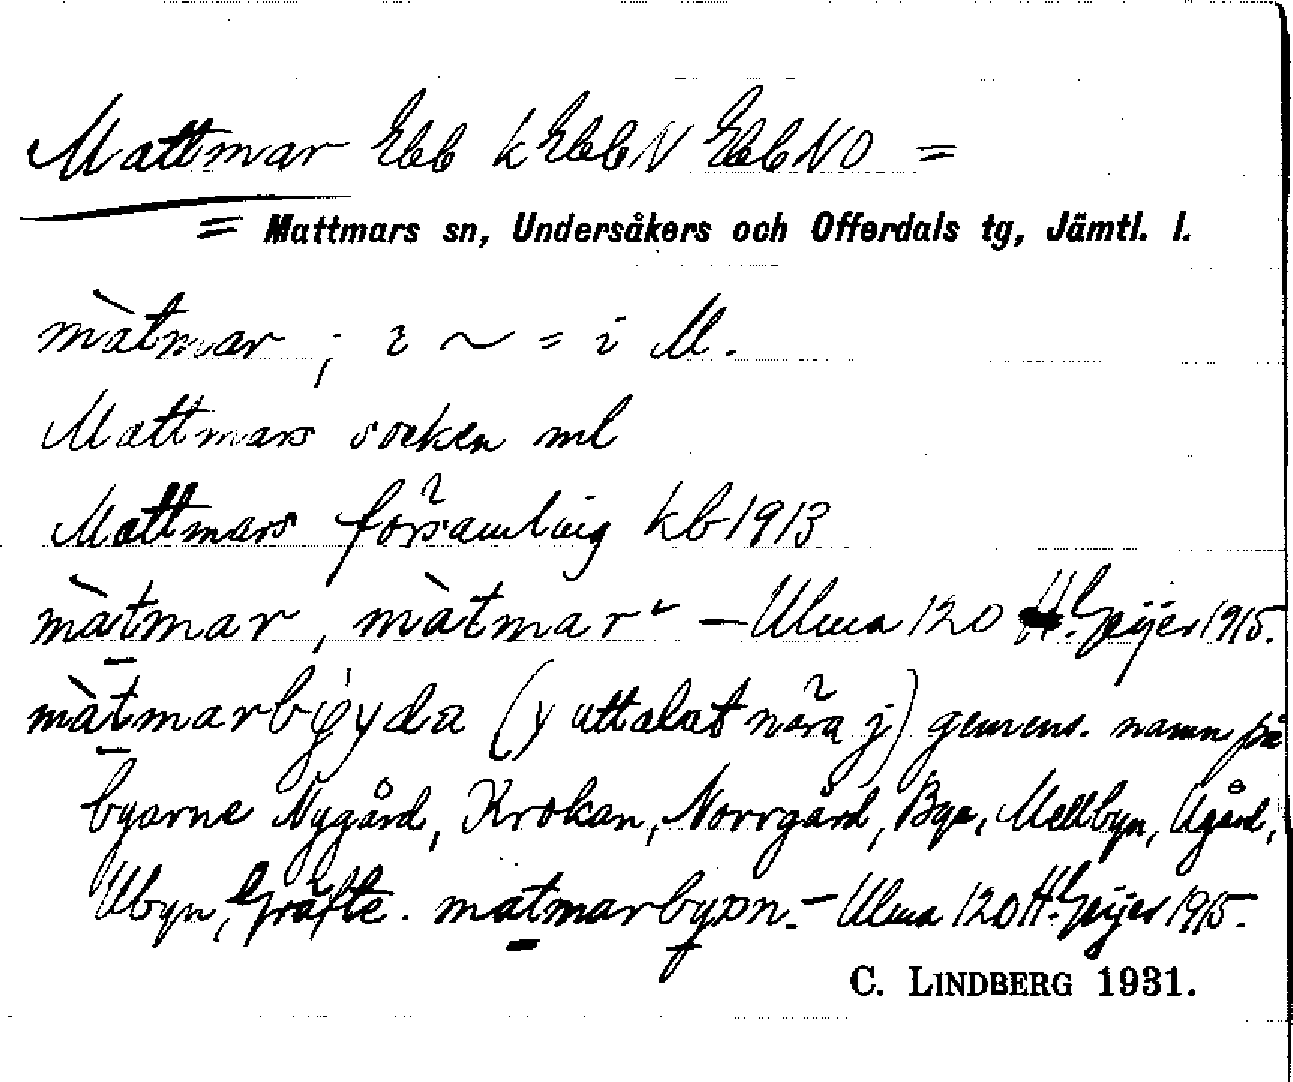 Mattmar Ebb k EbbN EbbNO =
= Mattmars sn, Undersåkers och Offerdals tg, Jämtl. l.
màtmar ; i ~ = i M.
Mattmars socken ml
Mattmars församling kb 1913
màtmar, màtmar – Ulma 120 H. Geijer 1915.
màtmarbýyda (y uttalat nära j) gemens. namn på
byarne Nygård, Krokan, Norrgård, Bye, Mellbyn, Ugård,
Ubyn, Gräfte. matmarbyən. – Ulma 120 H. Geijer 1915.
C. LINDBERG 1931.